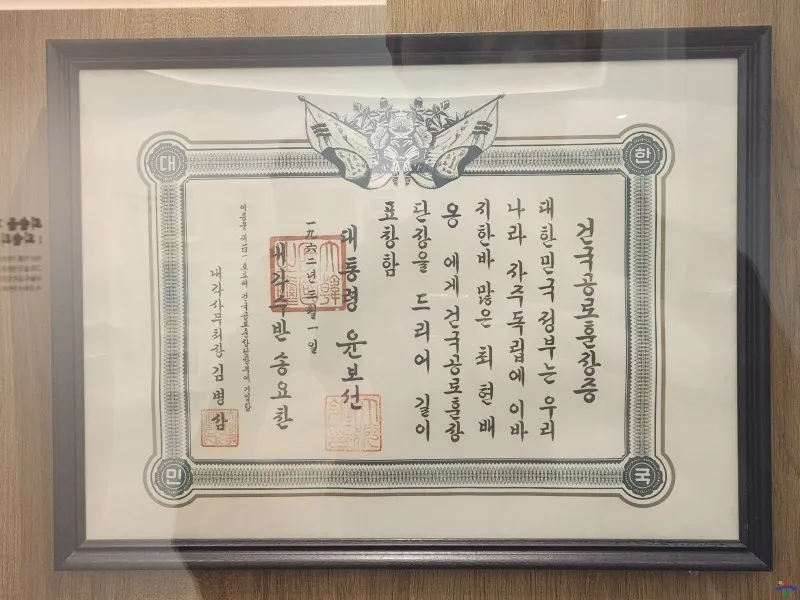 대한
민국
건국공로훈장증
대한민국 정부는 우리
나라 자주독립에 이바
지한바 많은 최현배
옹 에게 건국공로훈장
단장을 드리어 길이
표창함
대통령 윤보선
一九六二년 三월 一일
내각수반 송요찬
이증을 호로써 건국공로훈장 기입함
내각사무처장 김병삼